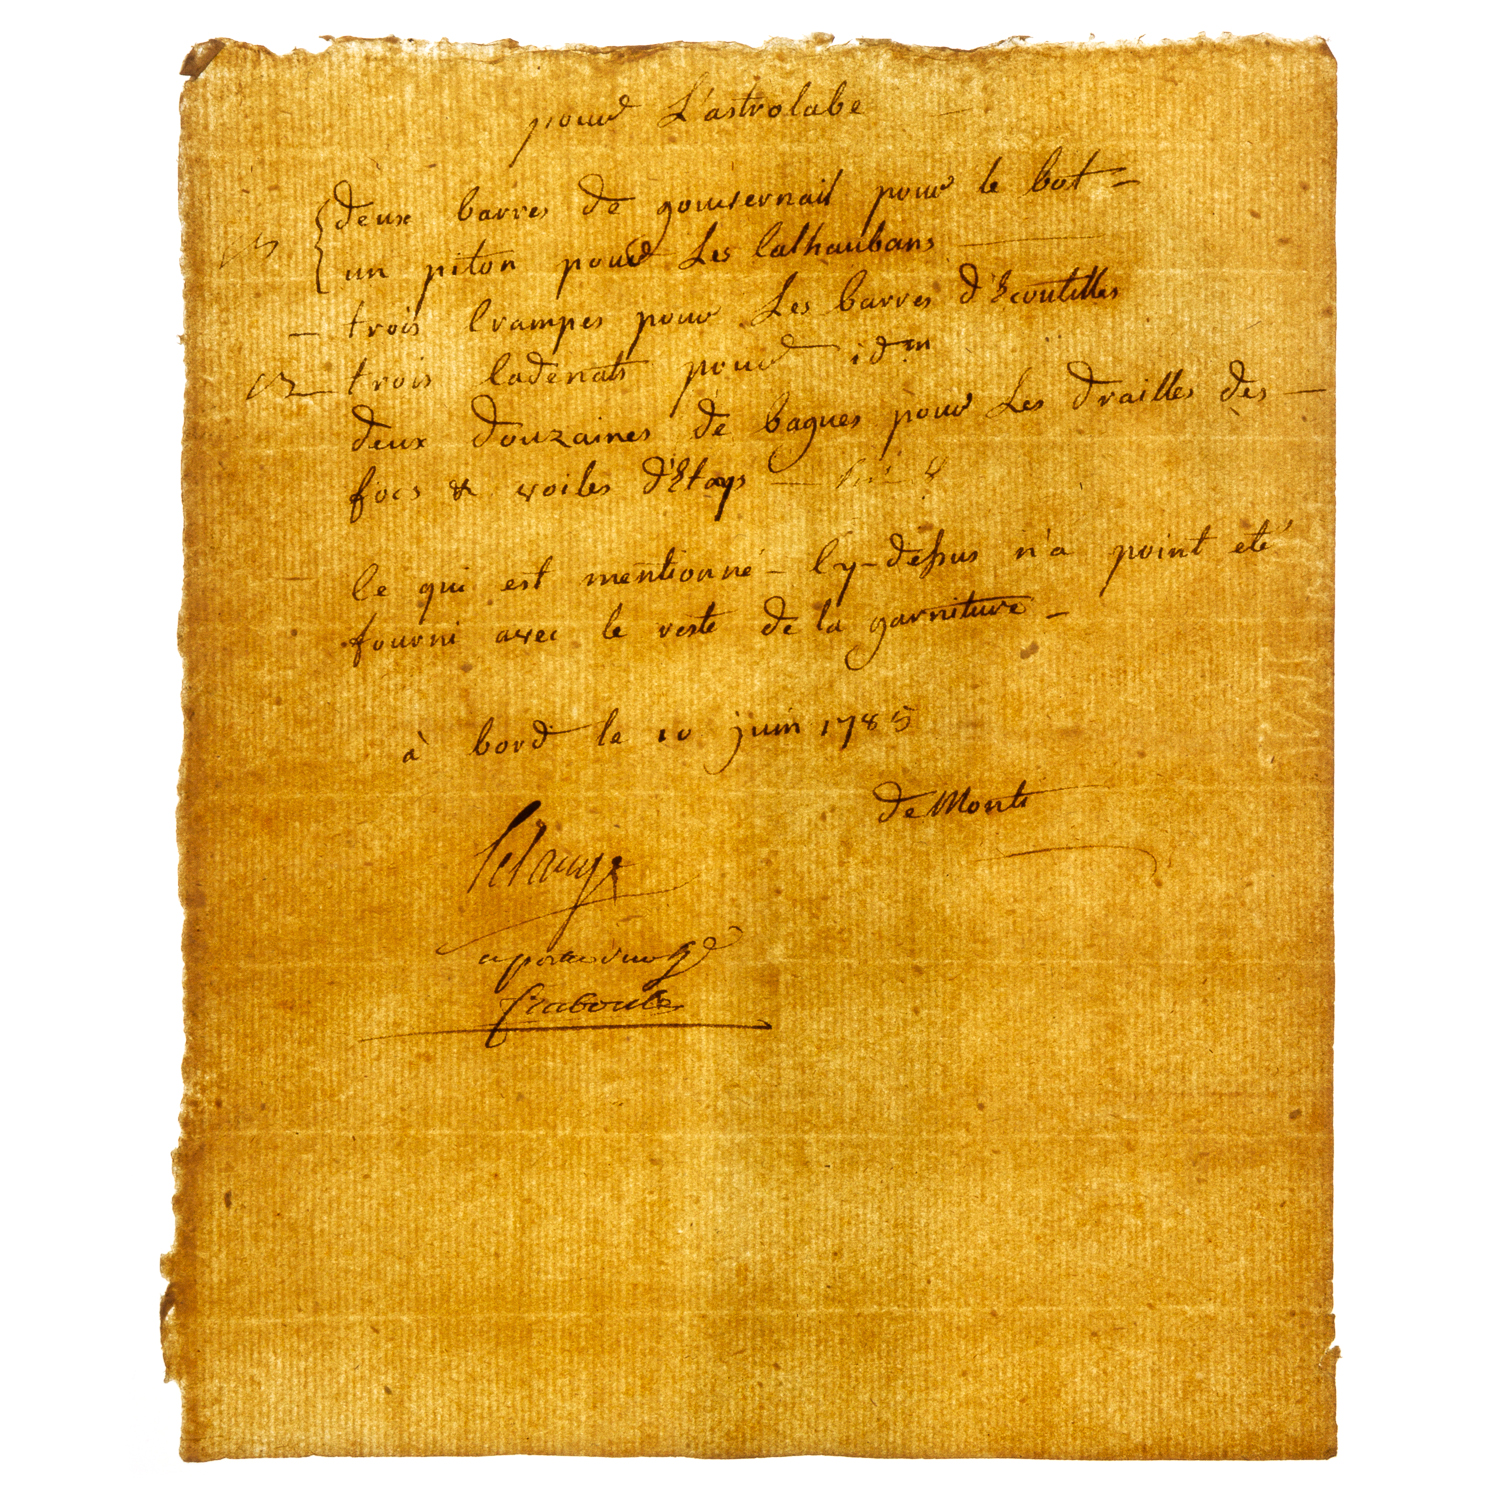 pour L'astrolabe
deux barres de gouvernail pour le bot =
un piton pour Les Calhaubans
- trois Crampes pour Les barres d'Ecoutilles
trois Cadenats pour idm
deux douzaines de bagues pour Les drailles des -
focs & voiles d'Etays -
Ce qui est mentionné - Cy-dessus n'a point eté
fourni avec le reste de la garniture -
à bord le 10 juin 1785
de Monti